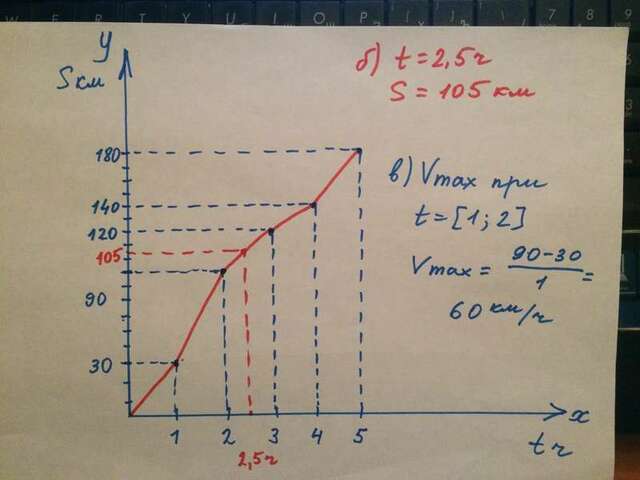 y
S км
180
140
120
105
90
30
1 2 3 4 5 x
2,5ч
t ч
б) t = 2,5ч
S = 105 км
в) Vmax при
t = [1; 2]
Vmax = 90-30 / 1 =
60 км/ч